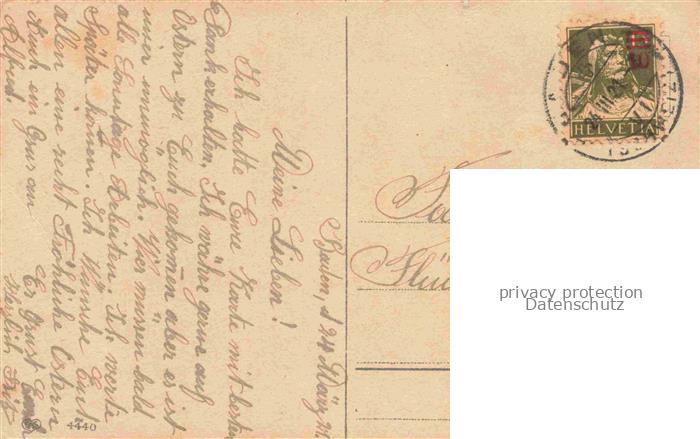 Baden, d 24 März 21.
Meine Lieben!
Ich hatte Eure Karte mit besten
Dank erhalten. Ich währe gerne auf
Ostern zu Euch gekomen aber es ist
mir unmöglich. Wir müssen bald
alle Sonntage Arbeiten. Ich werte
Später komen. Ich Wünsche Euch
allen eine recht Fröhliche Ostern
Auch ein Grus an
Alfred.
Es Grüst Euch
Herzlich Fritz
4440
HELVETIA
privacy protection
Datenschutz